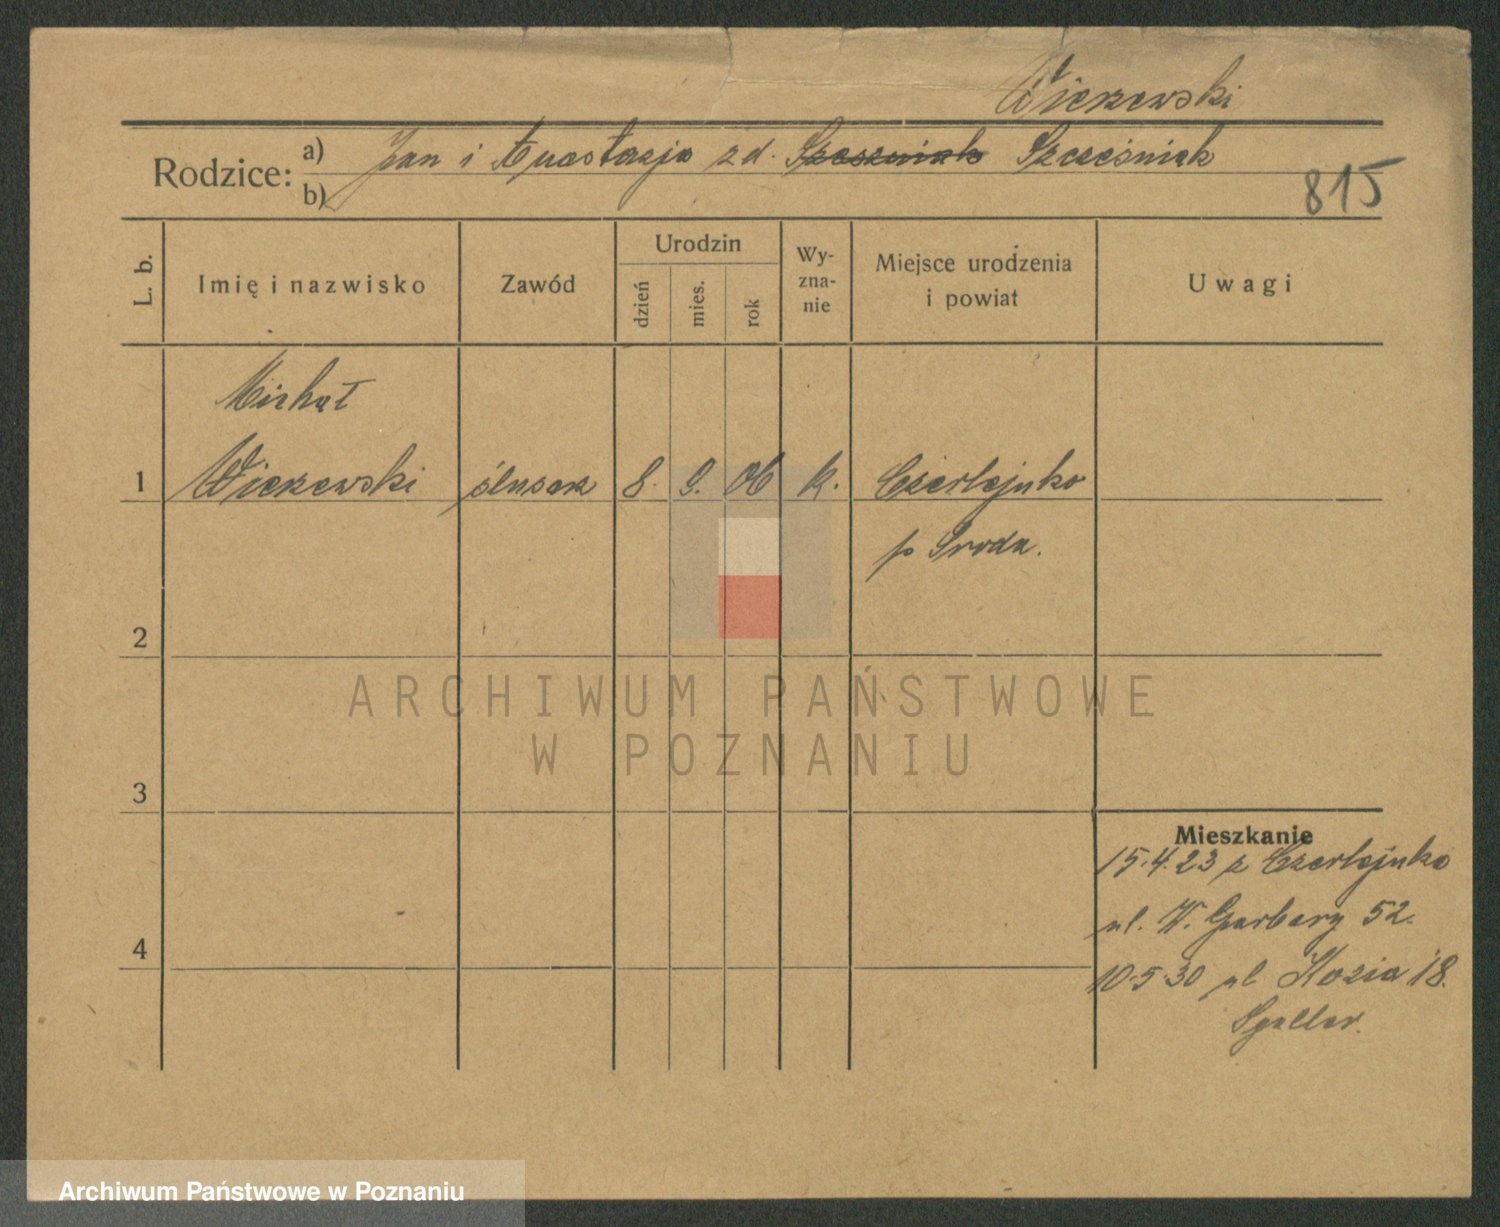 Wierzewski
Rodzice: a) Jan i Anastazja zd. Szcześniak
b)
815
L. b.
Imię i nazwisko
Zawód
Urodzin
dzień
mies.
rok
Wy-
zna-
nie
Miejsce urodzenia
i powiat
Uwagi
Michał
1 Wierzewski ślusarz 8. 9. 06 k. Czerlejnko
p Środa.
2
3
4
Mieszkanie
15.4.23 z Czerlejnko
ul. W. Garbary 52.
10.5.30 ul Kozia 18.
ARCHIWUM PAŃSTWOWE
W POZNANIU
Archiwum Państwowe w Poznaniu